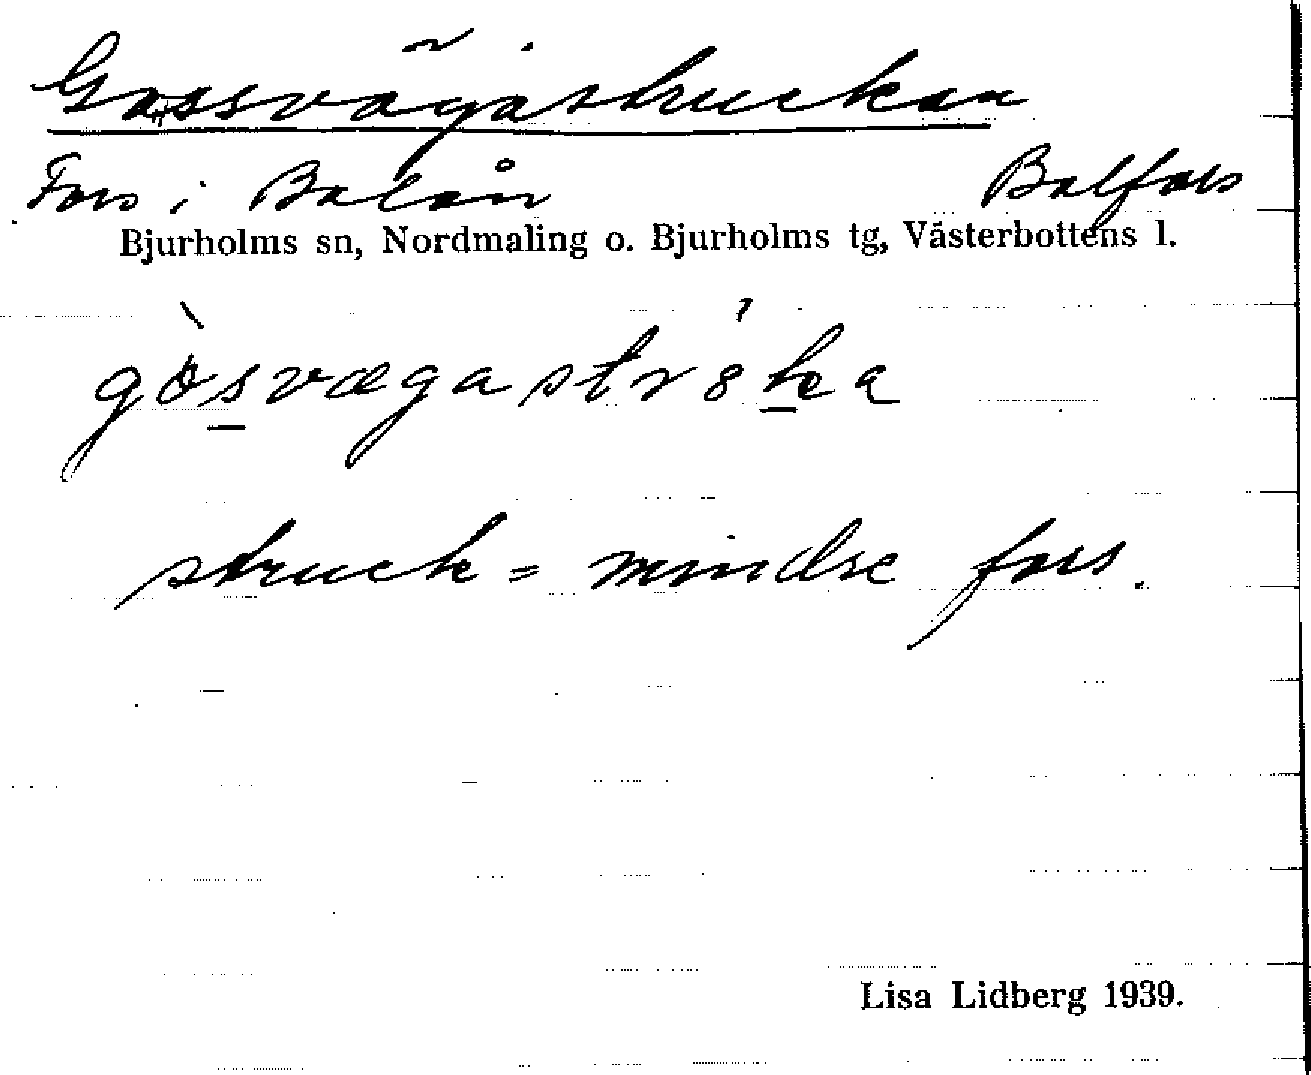 Gossvägastruckan
Fors i Balån Balfors
Bjurholms sn, Nordmaling o. Bjurholms tg, Västerbottens l.
gòsvægastrska
struck = mindre fors.
Lisa Lidberg 1939.